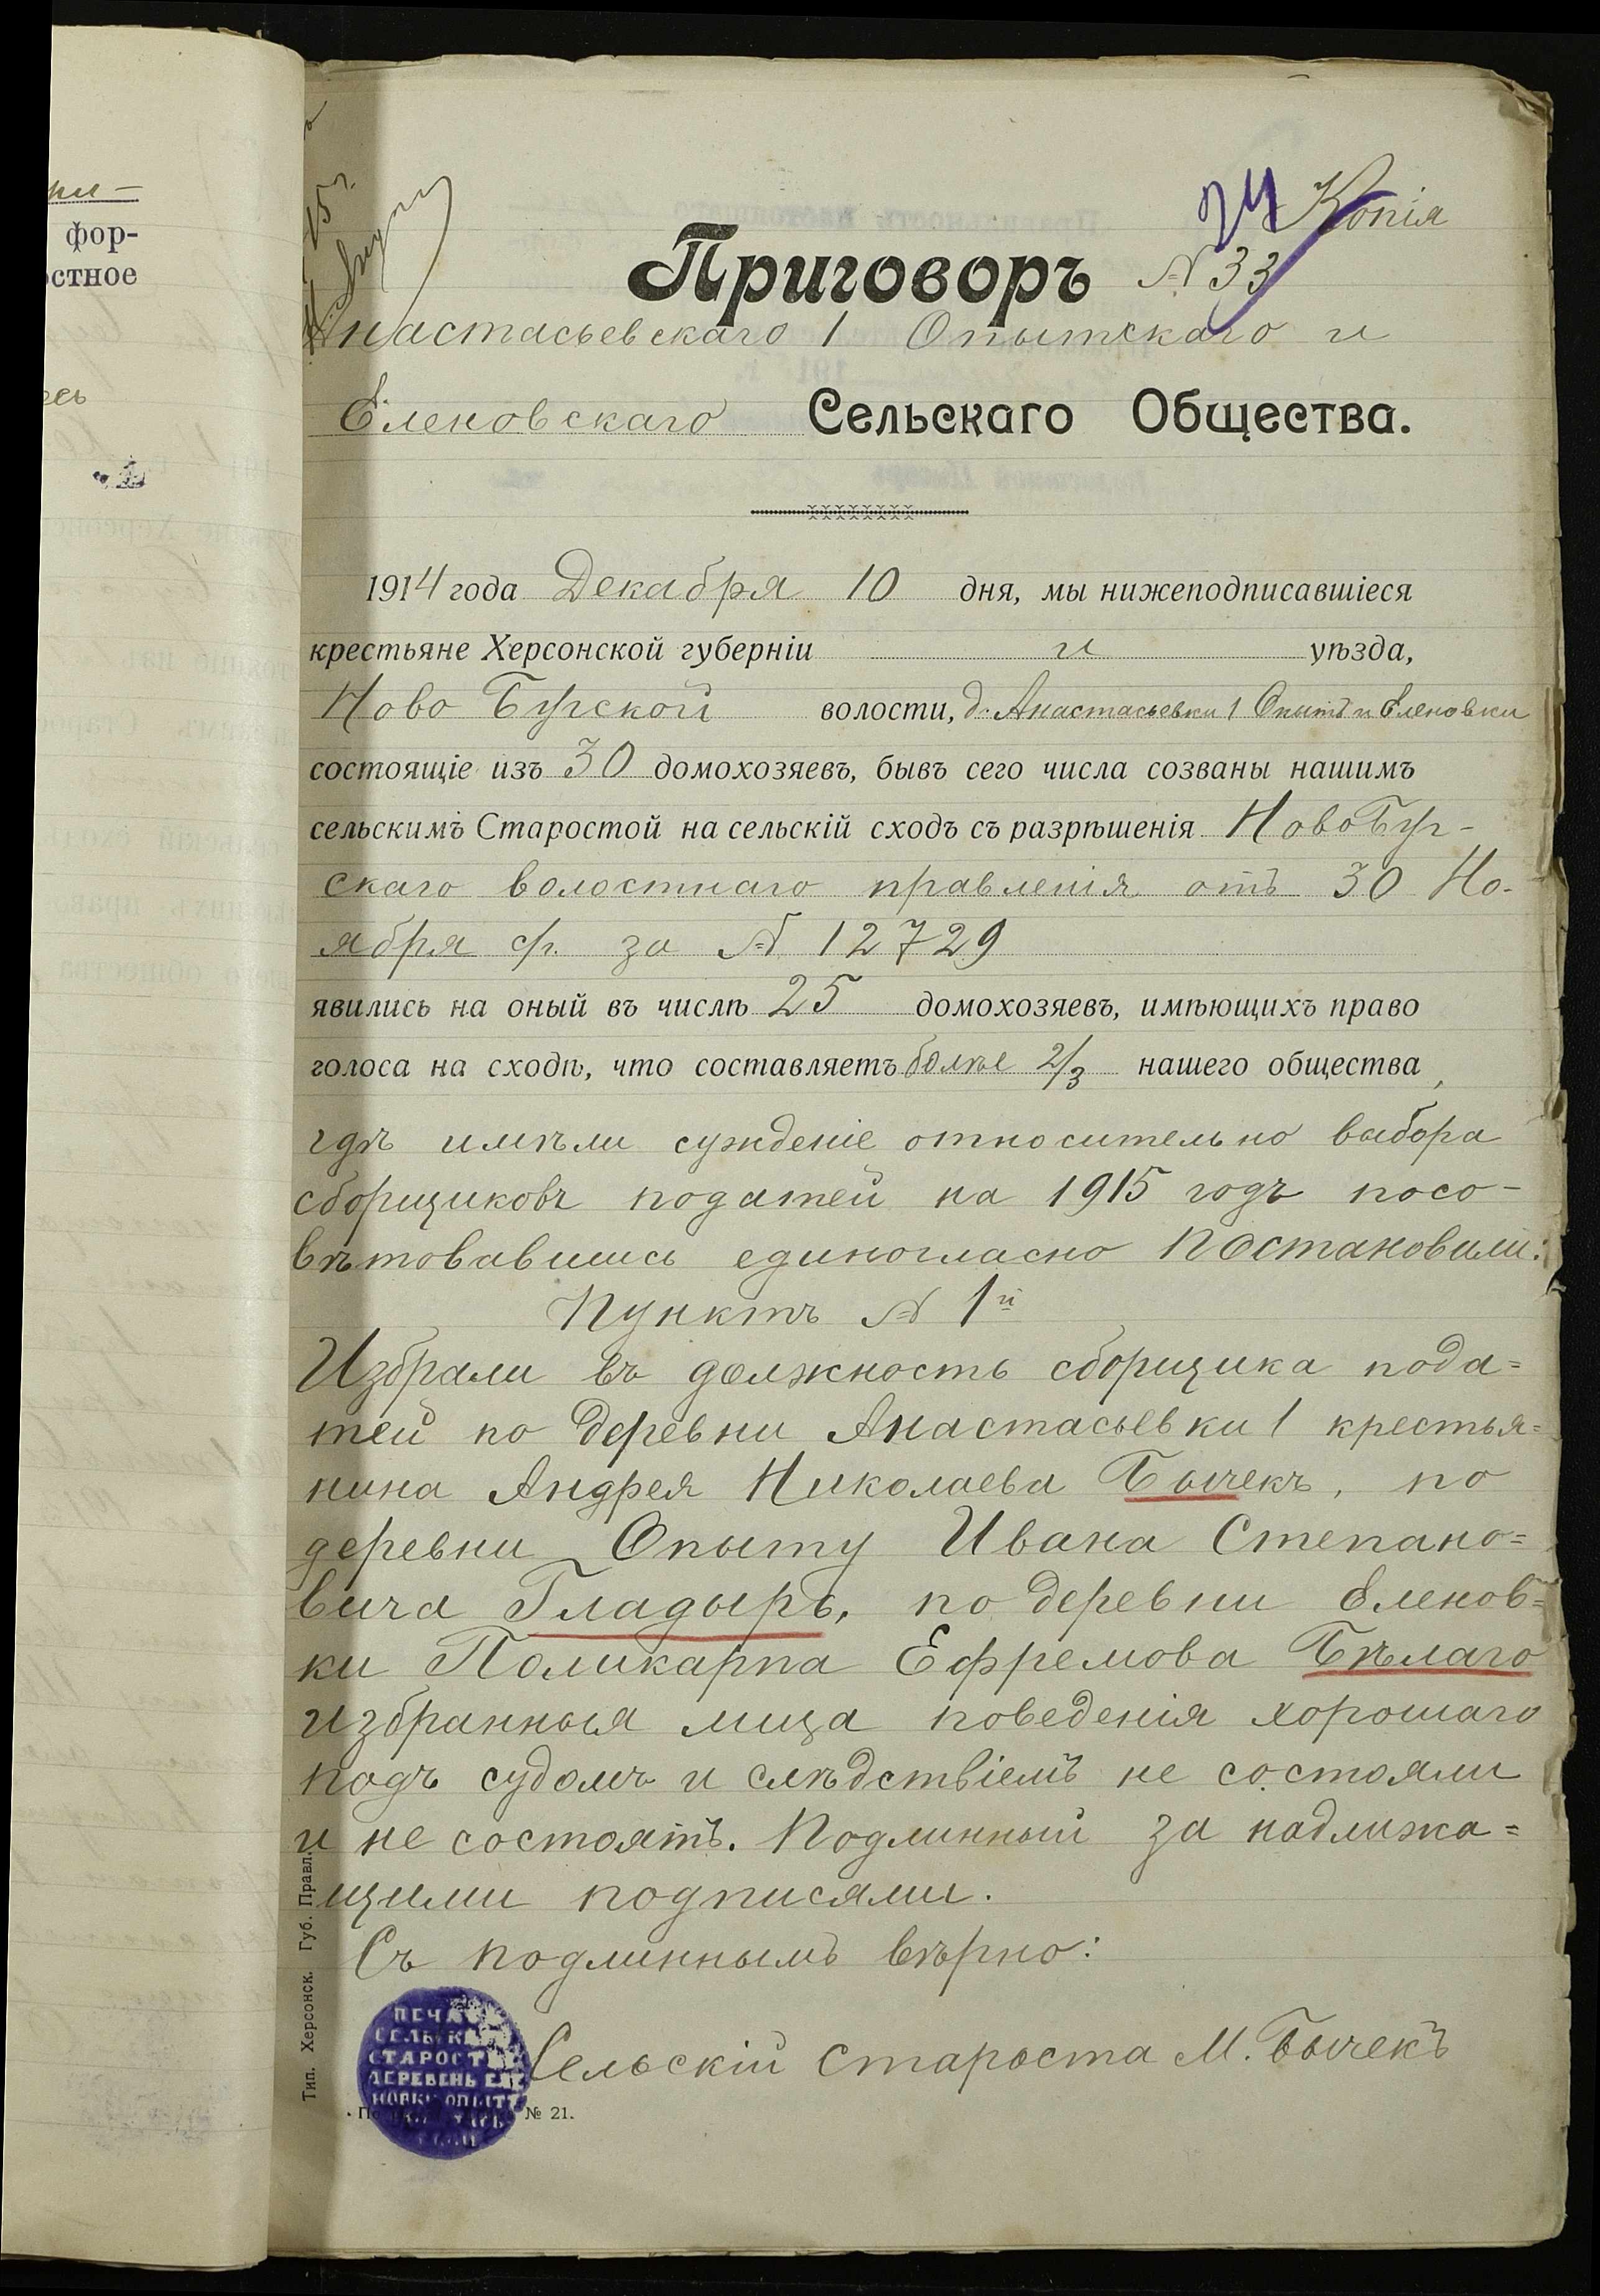 фор-
остное
24 Копія
Приговоръ № 33
Анастасьевскаго 1 Опытскаго и
Еленовскаго Сельскаго Общества.
1914 года Декабря 10 дня, мы нижеподписавшіеся
крестьяне Херсонской губерніи и уѣзда,
Ново Бугской волости, д. Анастасьевки 1 Опытъ и Еленовки
состоящіе изъ 30 домохозяевъ, бывъ сего числа созваны нашимъ
сельскимъ Старостой на сельскій сходъ съ разрѣшенія НовоБуг-
скаго волостнаго правленія отъ 30 Но-
ября с/г. за № 12729
явились на оный въ числѣ 25 домохозяевъ, имѣющихъ право
голоса на сходѣ, что составляетъ болѣе 2/3 нашего общества,
гдѣ имѣли сужденіе относительно выбора
сборщиковъ податей на 1915 годъ посо-
вѣтовавшись единогласно Постановили:
Пунктъ № 1й
Избрали въ должность сборщика пода=
тей по деревни Анастасьевки 1 крестья=
нина Андрея Николаева Бычекъ, по
деревни Опыту Ивана Степано=
вича Гладыръ, по деревни Еленов=
ки Поликарпа Ефремова Бѣлаго
избранныя лица поведенія хорошаго
подъ судомъ и слѣдствіемъ не состояли
и не состоятъ. Подлинный за надлежа=
щими подписями.
Съ подлиннымъ вѣрно:
Сельскій Староста М. Бычекъ
ПЕЧАТЬ
СЕЛЬСКАГО
СТАРОСТЫ
ДЕРЕВЕНЬ ЕЛЕ
НОВКИ ОПЫТА
№ 21.
Тип. Херсонск. Губ. Правл.